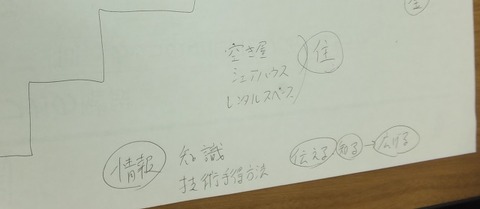 空き屋
シェアハウス
レンタルスペース
住
情報
知識
技術
方法
伝える
→広げる